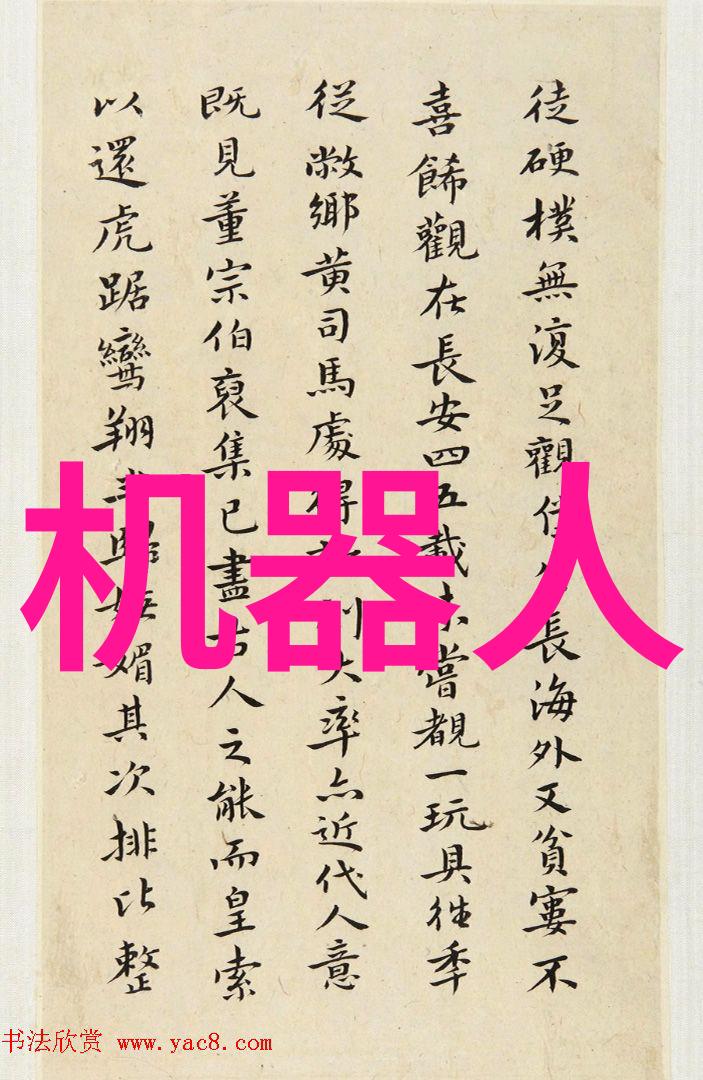 徒硬樸無復足觀長海外又貧寠不
喜餙觀在長安四五載未嘗覩一玩具往年
從敝鄉黄司馬處得大率亦近代人意
既見董宗伯裒集已盡古人之能而皇索
以還虎踞鸞翔媚其次排比整
机器人
书法欣赏 www.yac8.com